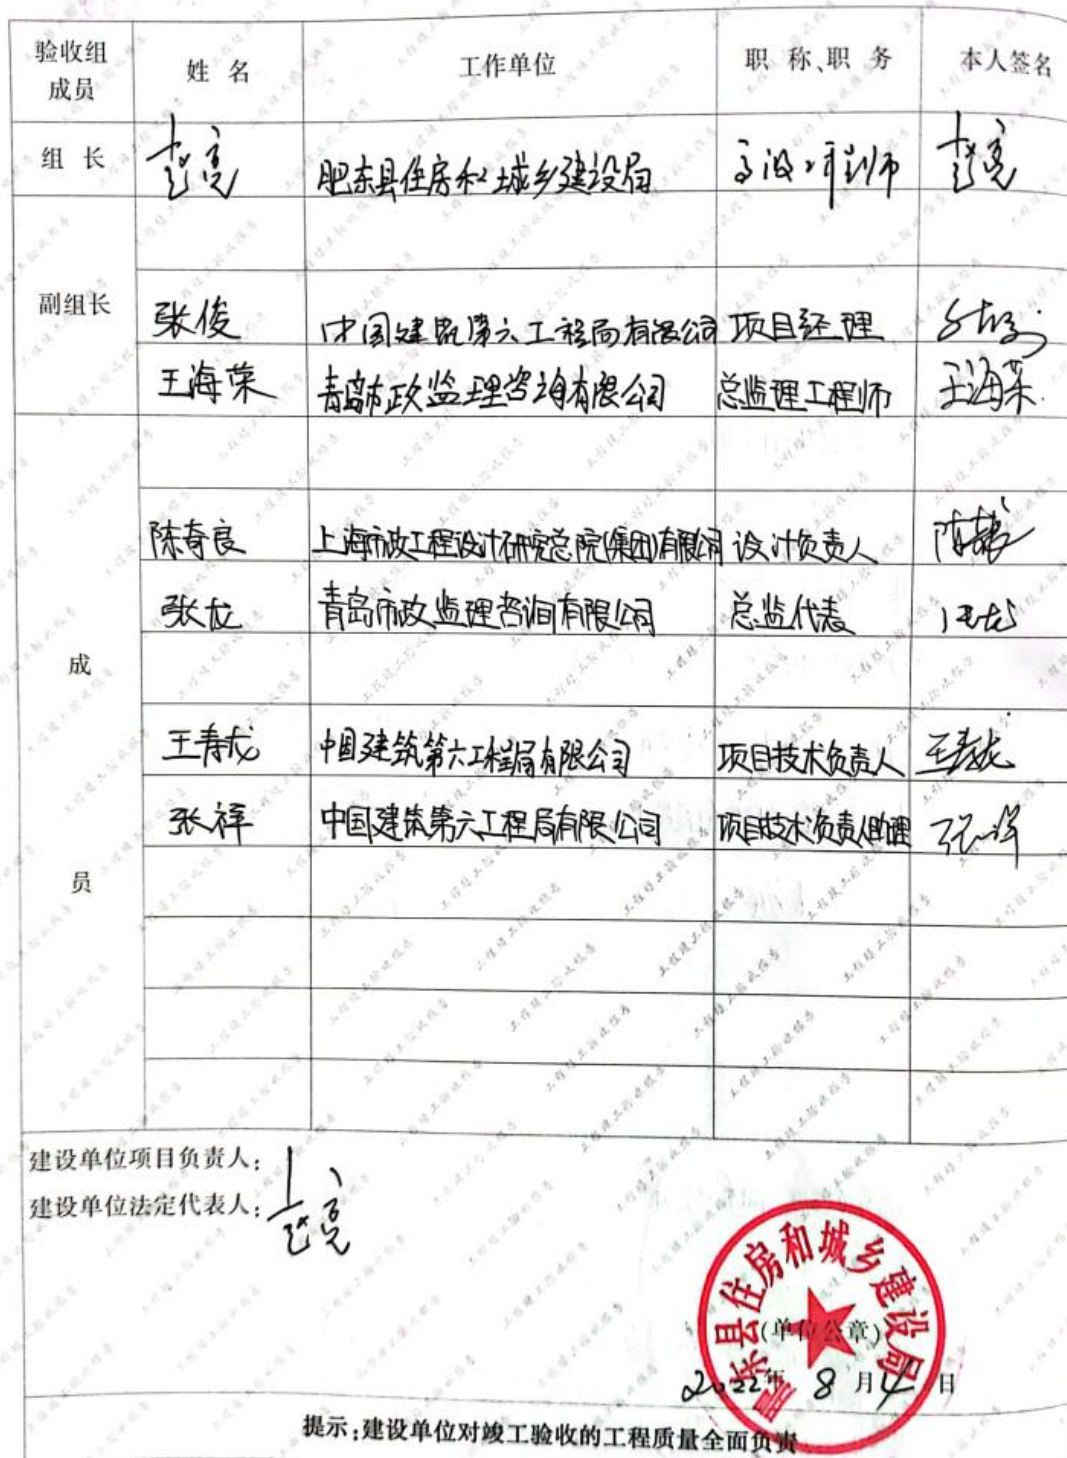 验收组成员 姓 名 工作单位 职 称、职 务 本人签名
组 长 赵亮 肥东县住房和城乡建设局 高级工程师 赵亮
副组长
张俊 中国建筑第六工程局有限公司 项目经理
王海荣 青岛市政监理咨询有限公司 总监理工程师 王海荣
成员
陈奇良 上海市政工程设计研究总院(集团)有限公司 设计负责人
张龙 青岛市政监理咨询有限公司 总监代表 张龙
王寿龙 中国建筑第六工程局有限公司 项目技术负责人 王寿龙
张祥 中国建筑第六工程局有限公司 项目技术负责人助理 张祥
建设单位项目负责人:
建设单位法定代表人: 赵亮
肥东县住房和城乡建设局
(单位公章)
2022年 8 月 4 日
提示:建设单位对竣工验收的工程质量全面负责